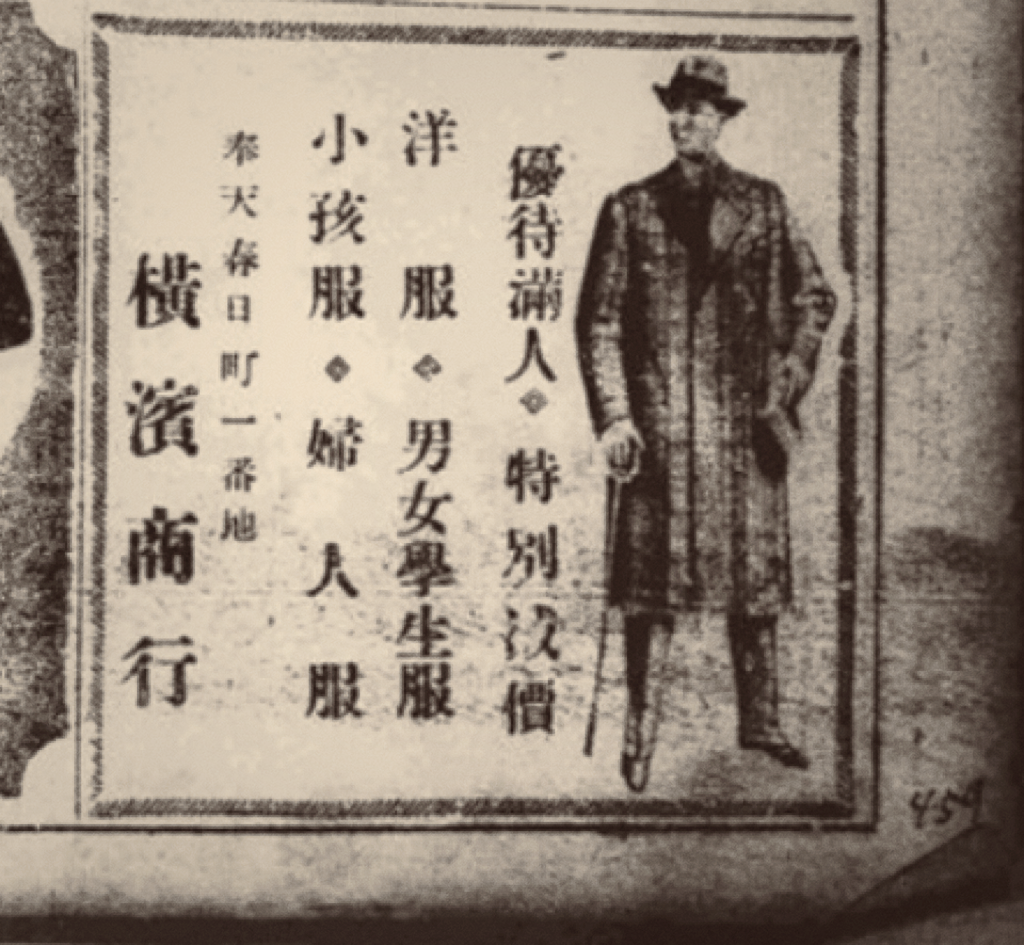 優待滿人◈特別沒價
洋服◈男女學生服
小孩服◈婦人服
奉天春日町一番地
橫濱商行
459